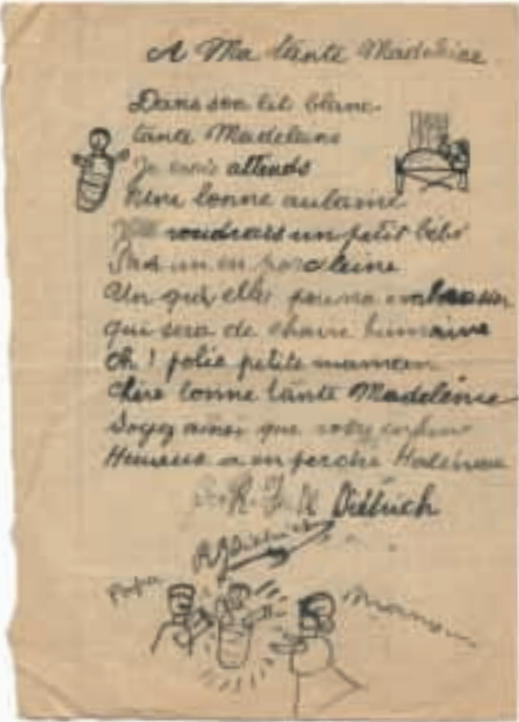 A Ma tante Madeleine
Dans son lit blanc
tante Madeleine
Je attends
bonne aubaine
voudrais un petit bébé
Pas un en porcelaine
Un qu'elle pourra embrasser
qui sera de chair humaine
Oh ! jolie petite maman
Chère bonne tante Madeleine
Soyez ainsi que votre enfant
Heureuse
R. Diétrich
Papa
Maman